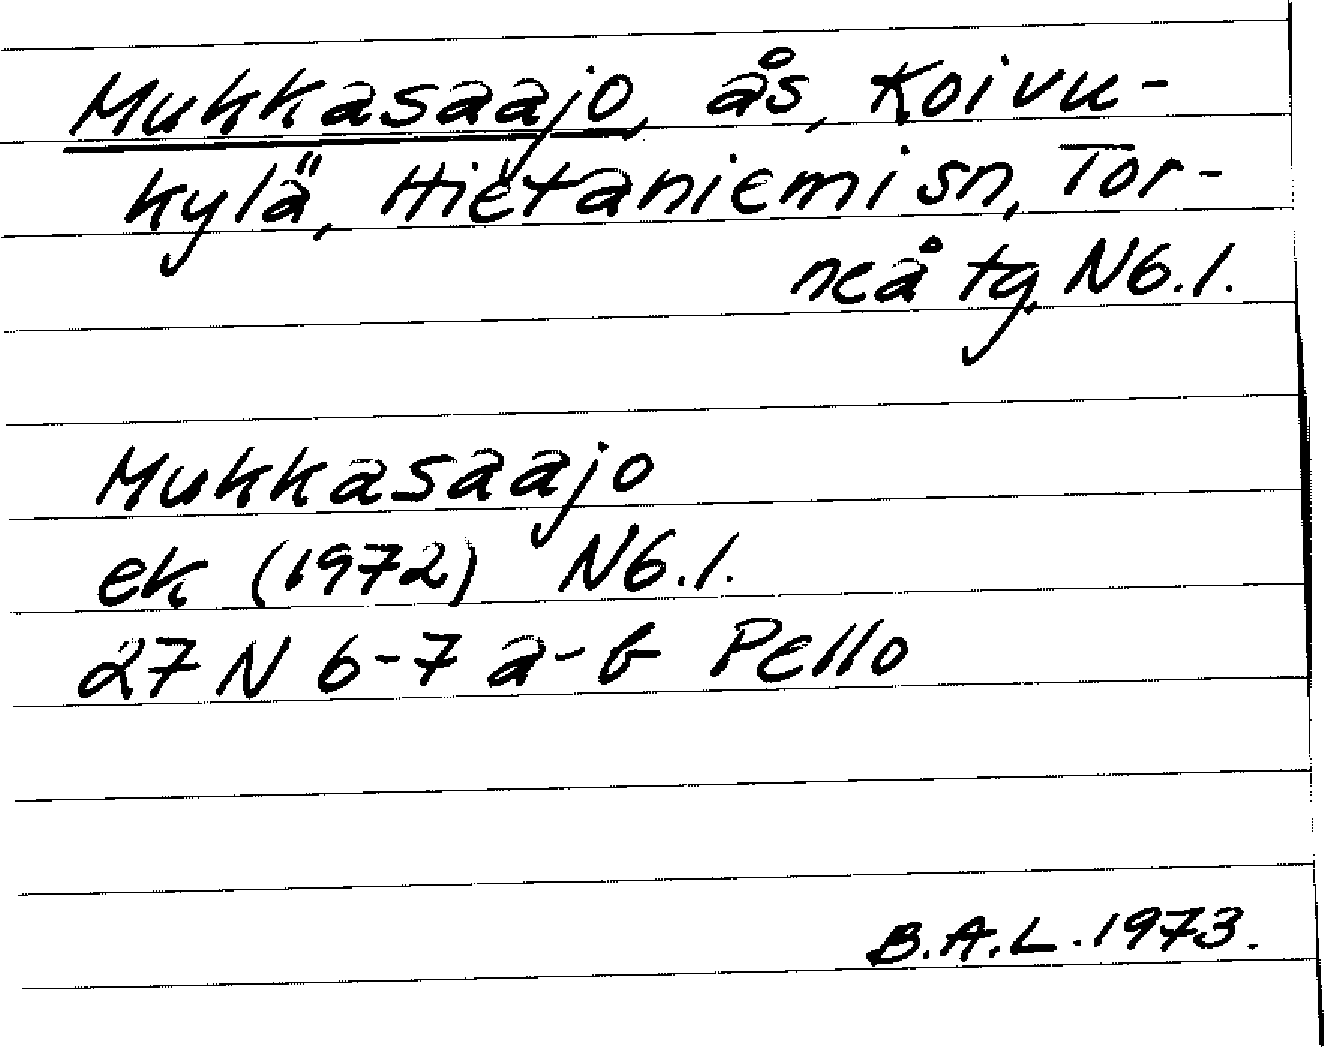 Mukkasaajo, ås, Koivu-
kylä, Hietaniemi sn, Tor-
neå tg, N6.1.
Mukkasaajo
ek (1972) N6.1.
27 N 6-7 a-b Pello
B.A.L. 1973.